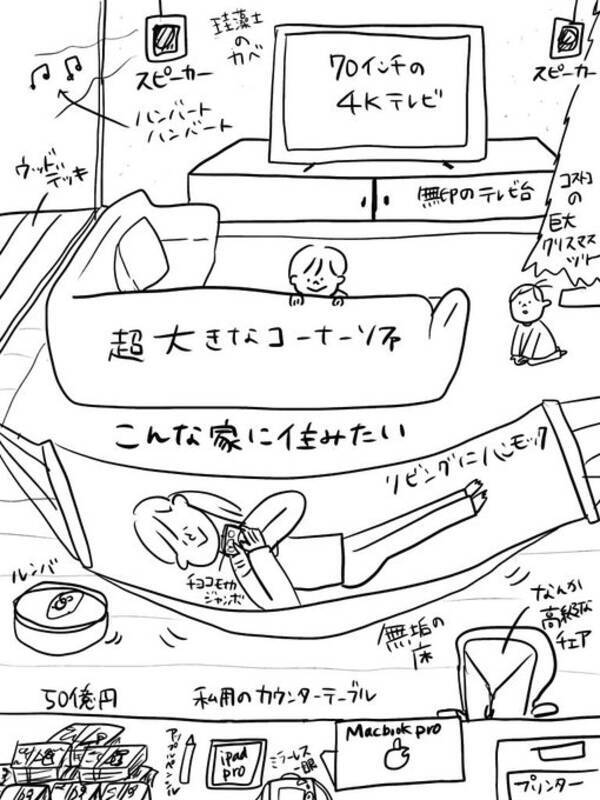 珪藻土
の
カベ
スピーカー
70インチの
4Kテレビ
スピーカー
ハンバート
ハンバート
ウッド
デッキ
無印のテレビ台
コストコ
の
巨大
クリスマス
ツリー
超大きなコーナーソファ
こんな家に住みたい
リビングにハンモック
チョコモナカ
ジャンボ
ルンバ
なんか
高級な
チェア
無垢の
床
50億円
私用のカウンターテーブル
アップルペンシル
ipad
pro
ミラーレス
一眼
Macbook pro
プリンター